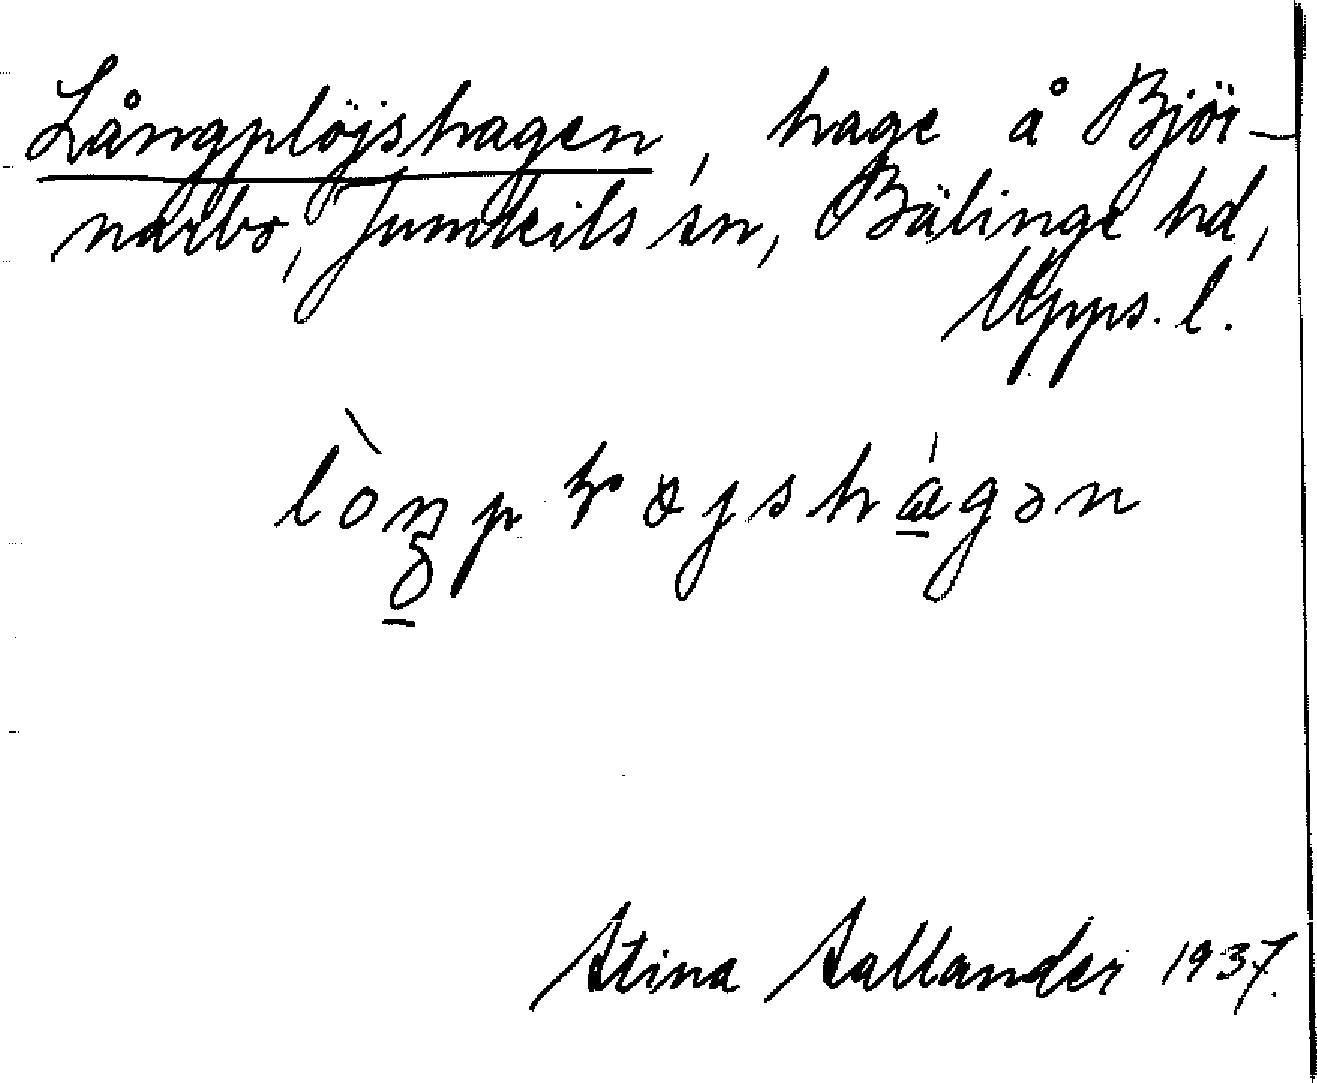 Långplöjshagen, hage å Björ-
narbo, Jumkils sn, Bälinge hd,
Upps. l.
Stina Sallander 1937.